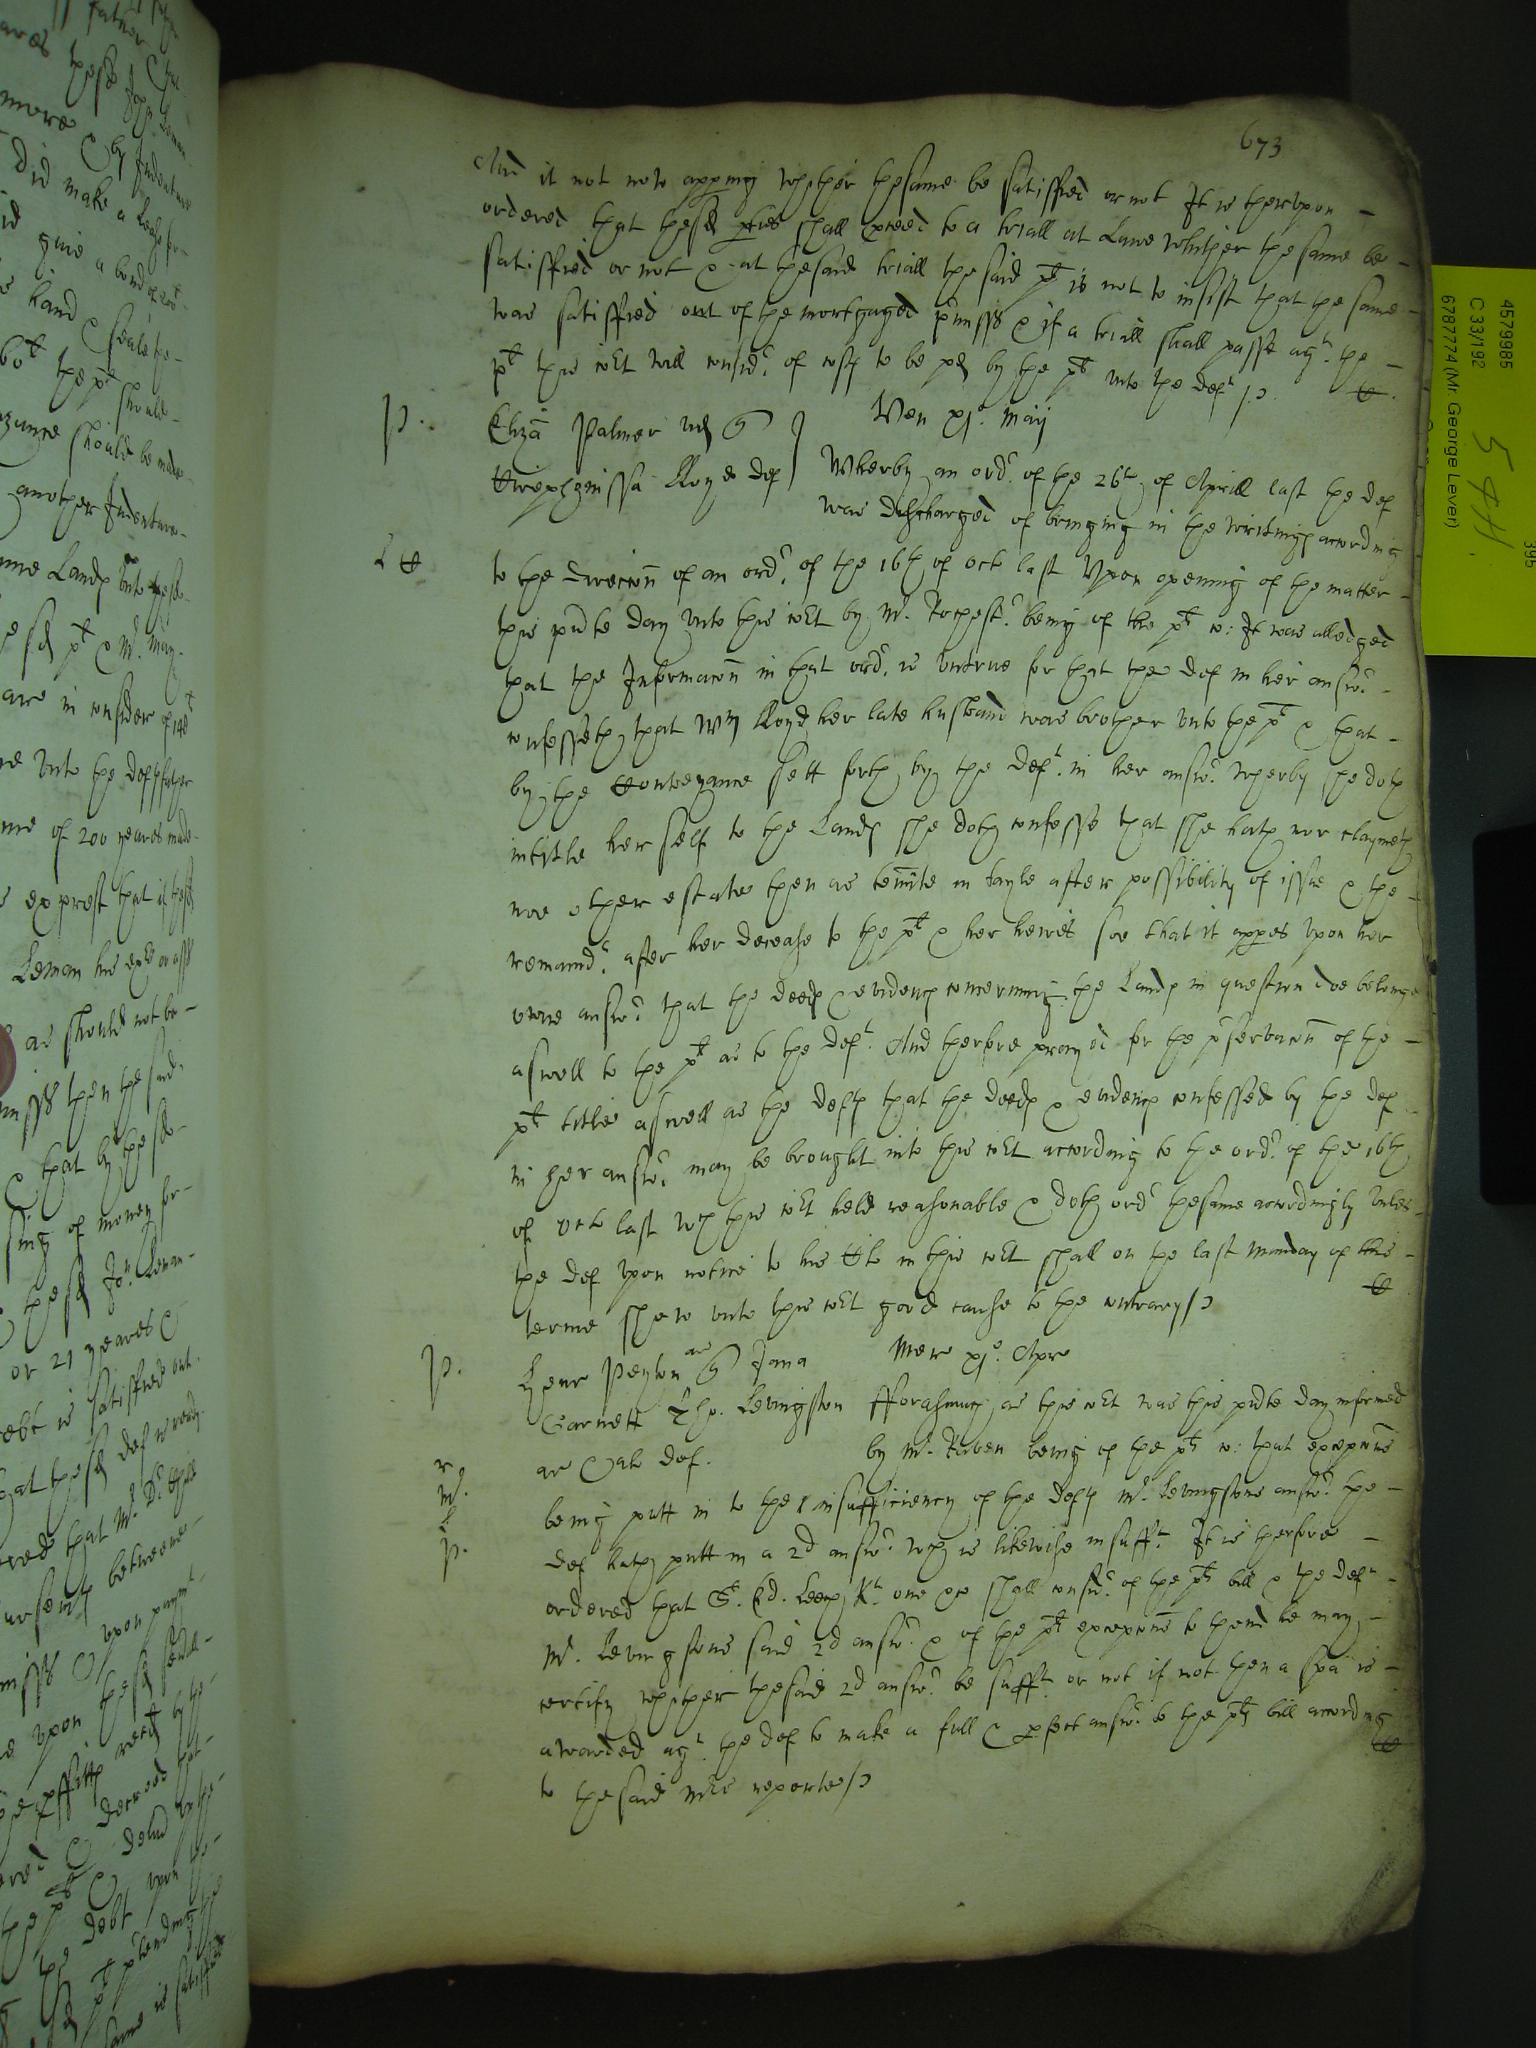 673
And it not now appering whether thesame be satisffied or not It is therupon
ordered that thesd pties shall pceed to a triall at Lawe whither the same be
satisffied or not & at thesaid triall the said plt is not to insist that the same
was satisffied out of the mortgaged pmisss & if a triall shall passe agt. the
plt this cort will considr. of costs to be pd by the plt unto the deft
Ven xjo. Maij
p. Eliza Palmer vid
Lloyd def
Wherby an ordr. of the 26th of Aprill last the def
was discharged of bringing in the writings according
to the direccon of an ordr. of the 16th of Octo last Upon opening of the matter
this pnte day unto this cort by Mr. Rochestr. being of the plts co: It was alledged
that the Informacon in that ordr. is untrue for that the def in her answr
confesseth that Wm Lloyd her late husband was brother unto the plt & that
by the Conveyance sett forth by the deft. in her answr wherby she doth
intitle her self to the Lands she doth confesse that she hath nor claymeth
noe other estate then as tennte in tayle after possibility of issue & the
remaindr. after her decease to the plt & her heires soe that it appes upon her
owne answr that the deeds & evidencs concerning the Lands in question doe belonge
aswell to the plt as to the deft. And therfore prayed for the pservacon of the
plts title aswell as the defts that the deeds & evidencs confessed by the def
in her answr may be brought into this cort according to the ordr. of the 16th
of Octo last wch this cort held reasonable & doth ordr thesame accordingly unles
the def upon notice to his Cl: in this cort shall on the last Monday of this
terme shew unto this cort good cause to the contrary
Merc xjo. Apr
p. Henr Peyton ar Jana
Garnett Tho. Levingston
ar & al: def.
Fforasmuch as this cort was this pnte day informed
by Mr. Raven being of the plts co: that excepcons
being putt in to the insufficiency of the defts Mr. Levingstons answr the
def hath putt in a 2d answr wch is likewise insufft. It is therfore
ordered that Sr. Ed. Leech Kt. one &c shall considr. of the plts bill & the deft
Mr. Levingstons said 2d answr & of the plts excepcons to thend he may
certify whether thesaid 2d answr. be sufft or not if not then a spa is
awarded agt. the def to make a full & pfect answr to the plts bill according
to thesaid Mrs reporte
4579985
C 33/192
6787774 (Mr. George Lever)
395